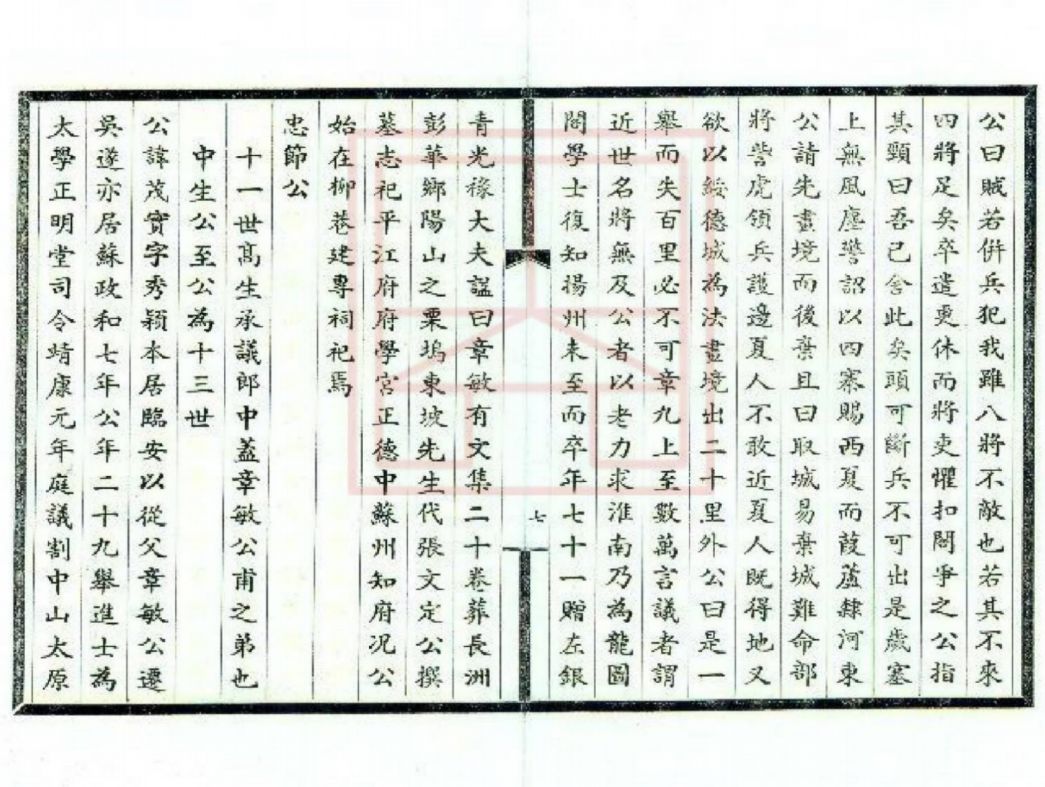 公曰賊若併兵犯我雖八將不敵也若其不來
四將足矣卒遣更休而將吏懼扣閤爭之公指
其頸曰吾已舍此矣頭可斷兵不可出是歲塞
上無風塵警詔以四寨賜西夏而葭蘆隸河東
公請先畫境而後棄且曰取城易棄城難命部
將訾虎領兵護邊夏人不敢近夏人既得地又
欲以綏德城為法畫境出二十里外公曰是一
舉而失百里必不可章九上至數萬言議者謂
近世名將無及公者以老力求淮南乃為龍圖
閣學士復知揚州未至而卒年七十一贈左銀
七
青光祿大夫謚曰章敏有文集二十卷葬長洲
彭華鄉陽山之栗塢東坡先生代張文定公撰
墓志祀平江府府學宮正德中蘇州知府况公
始在柳巷建專祠祀焉
忠節公
十一世髙生承議郎中蓋章敏公甫之弟也
中生公至公為十三世
公諱茂實字秀穎本居臨安以從父章敏公遷
吳遂亦居蘇政和七年公年二十九舉進士為
太學正明堂司令靖康元年庭議割中山太原